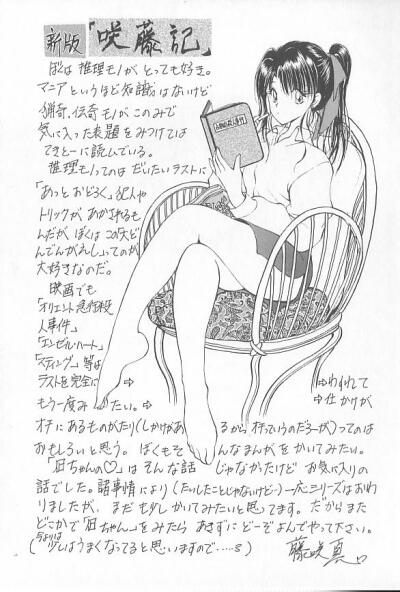 新版「咲藤記」
ぼくは推理モノがとっても好き。
マニアというほど知識はないけど
猟奇、伝奇モノがこのみで
気に入った表題をみつけては
てきとーに読んでいる。
推理モノってのはだいたいラストに
「あっとおどろく」犯人や
トリックがあかされるも
んだが、ぼくはこの「大ど
んでんがえし」ってのが
大好きなのだ。
映画でも
「オリエント急行殺
人事件」
「エンゼル・ハート」
「スティング」等は
ラストを完全に⇨ ⇨われて
もう一度み たい。⇨ ⇨仕かけが
オチにあるものがたり(しかけがあるからオチっていうのだろーが)ってのは
おもしろいと思う。ぼくもそんなまんがをかいてみたい。
「ちゃんの♡」はそんな話じゃなかったけどお気に入りの
話でした。諸事情により(たいしたことじゃないけど…)一応シリーズはおわ
りましたが、まだも少しかいてみたいと思ってます。だからまた
どこかで「ちゃん…」をみたらあきずにどーぞよんでやって下さい。
(少しはうまくなってると思いますので……s) 藤咲真